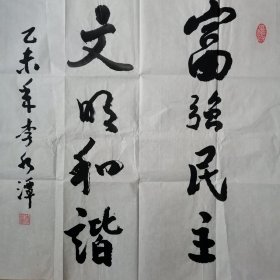 富强民主
文明和谐
乙未年李水潭